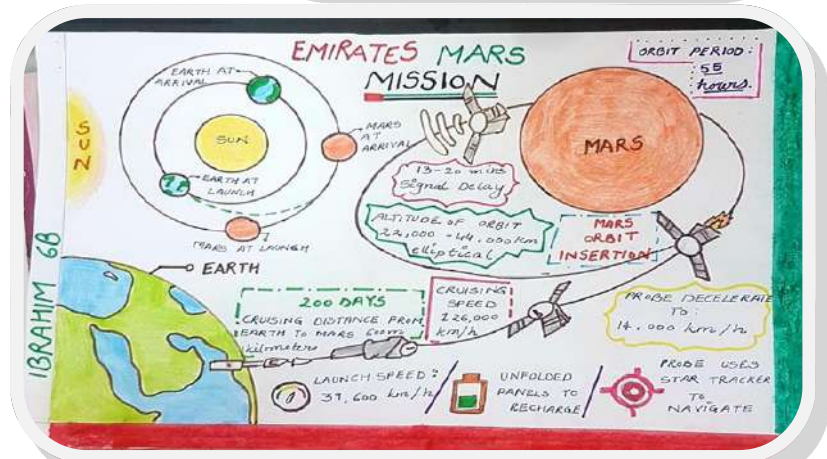 EMIRATES MARS
MISSION
ORBIT PERIOD:
55
hours.
EARTH AT
ARRIVAL
SUN
SUN
MARS
AT
ARRIVAL
EARTH AT
LAUNCH
MARS AT LAUNCH
MARS
13-20 mins
Signal Delay
ALTITUDE OF ORBIT
22,000 - 44,000km
elliptical
MARS
ORBIT
INSERTION
EARTH
IBRAHIM 6B
200 DAYS
CRUISING DISTANCE FROM
EARTH TO MARS 600m
kilometers
CRUISING
SPEED
126,000
km/h
PROBE DECELERATE
TO:
14,000 km/h
LAUNCH SPEED:
39,600 km/h
UNFOLDED
PANELS TO
RECHARGE
PROBE USES
STAR TRACKER
TO
NAVIGATE